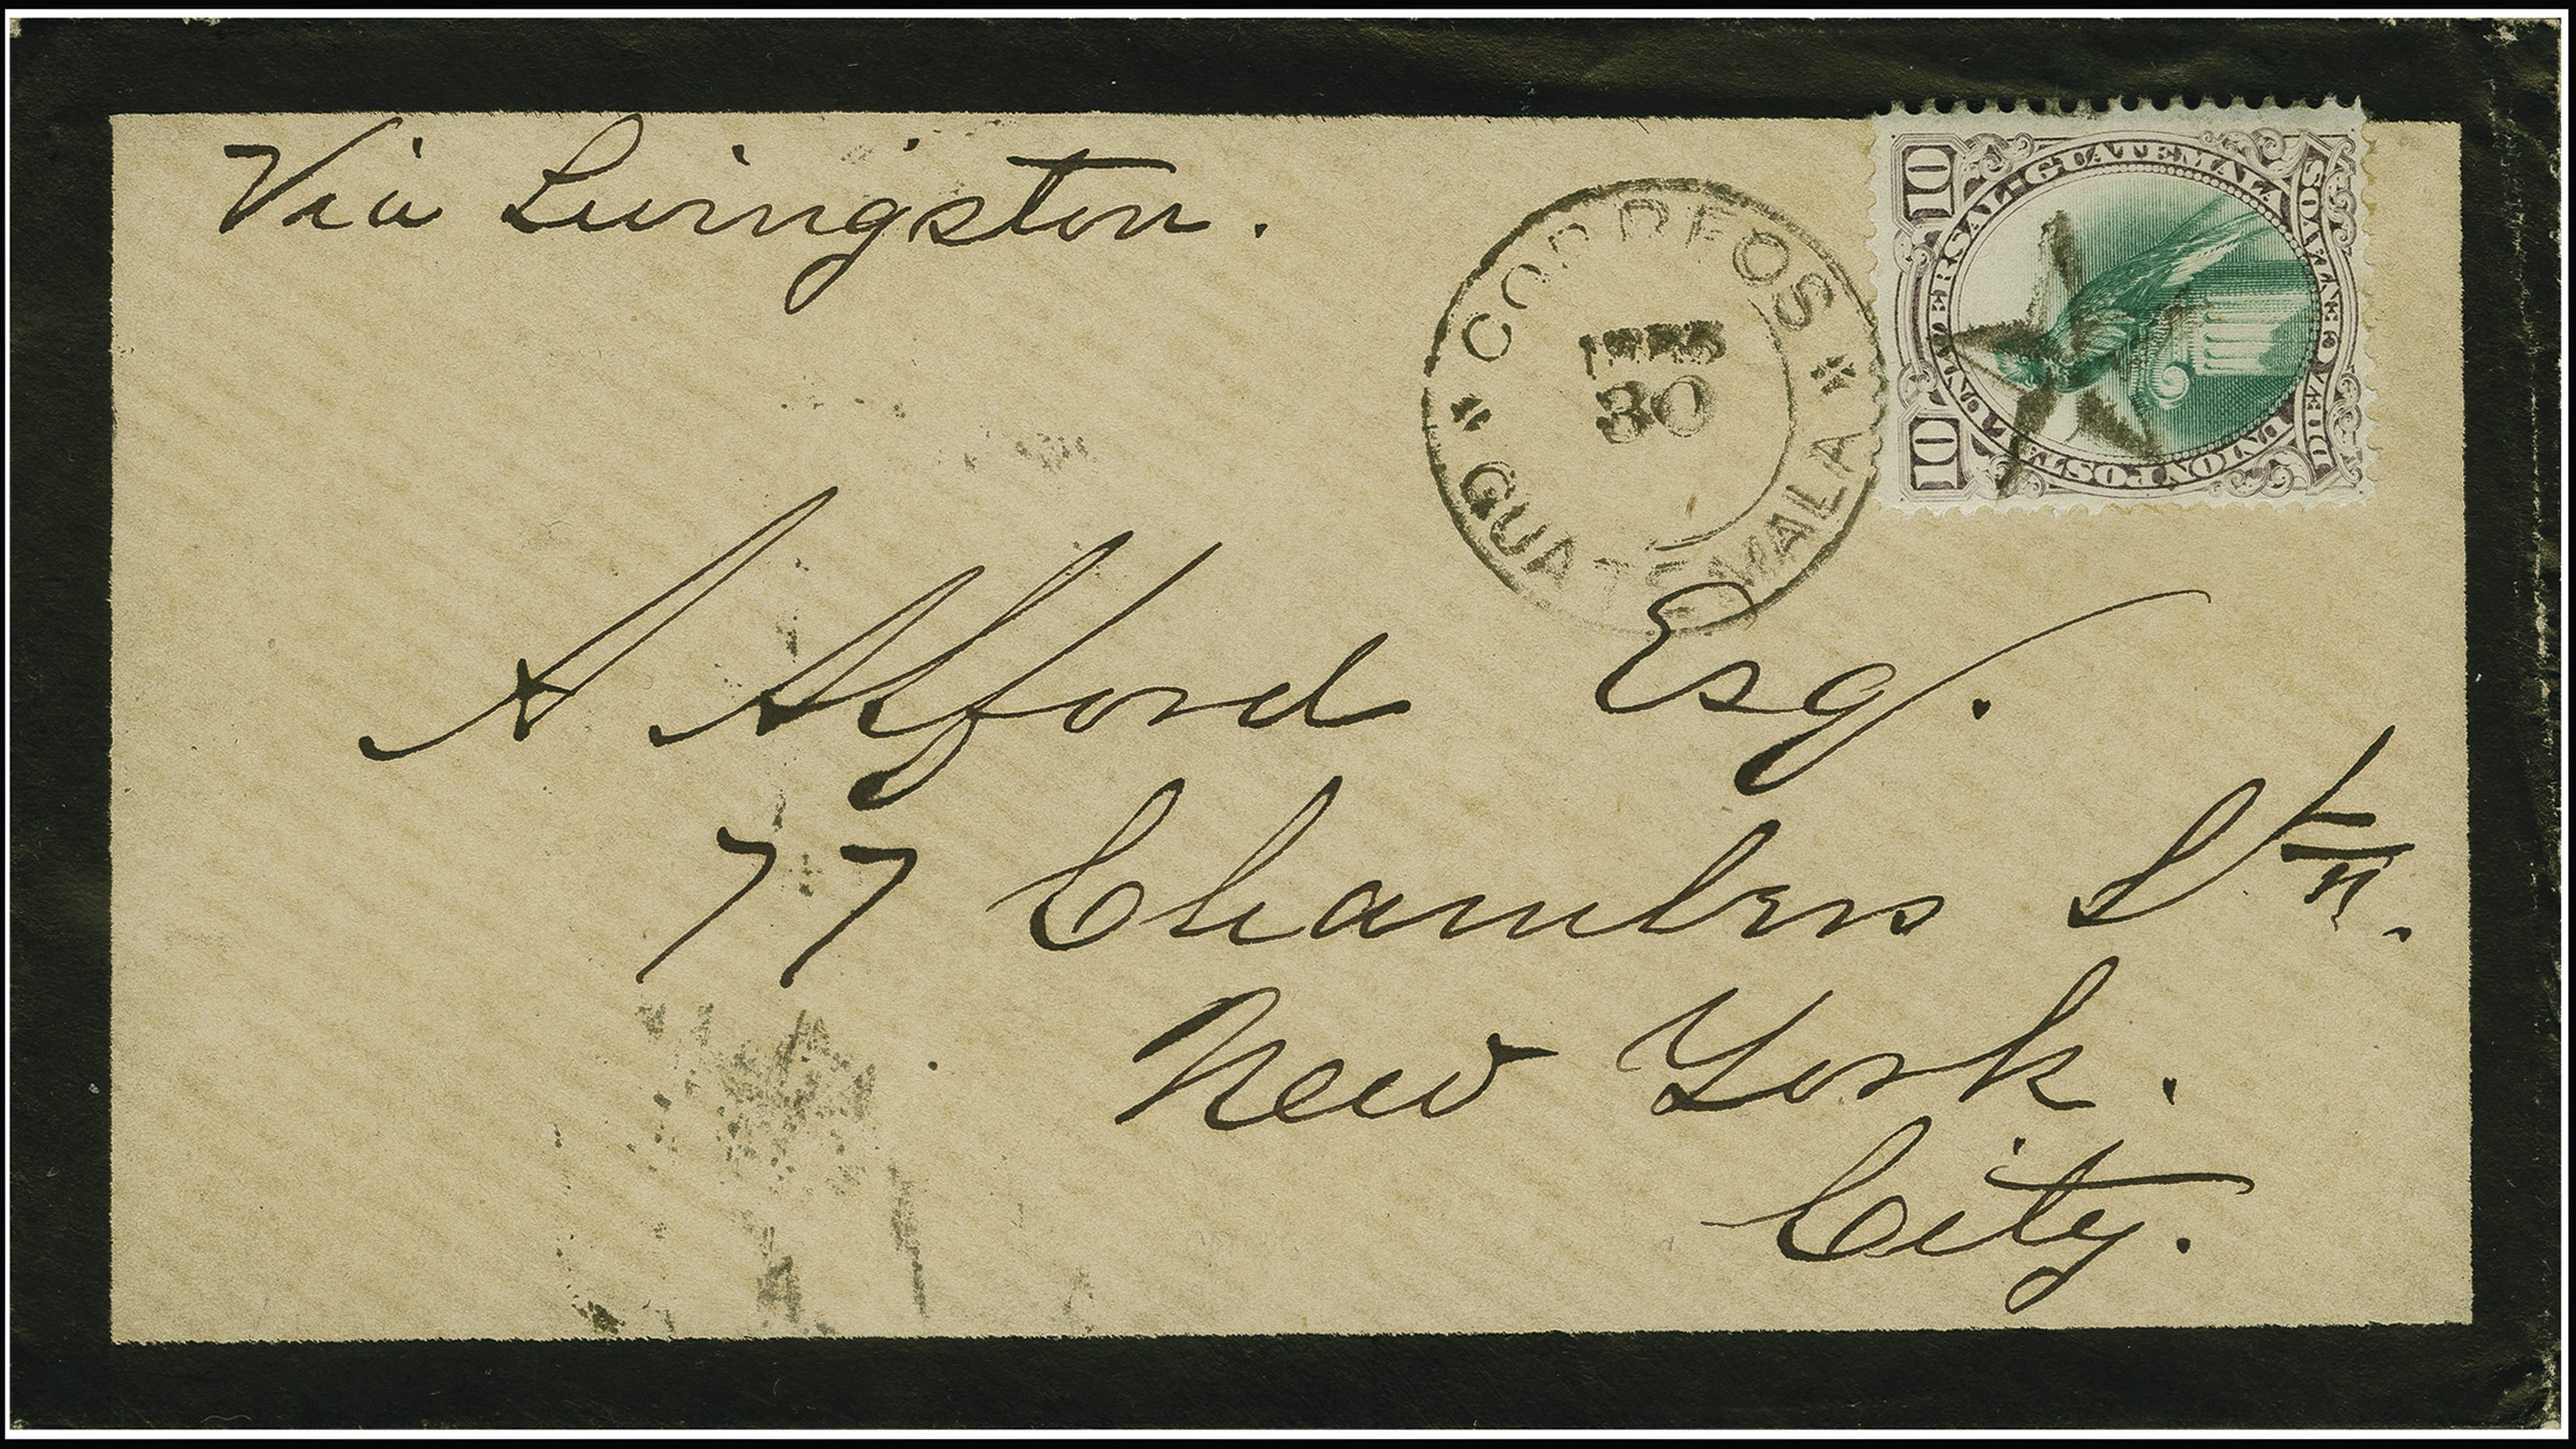 Via Livingston.
CORREOS
30
GUATEMALA
10
10
UNION POSTAL UNIVERSAL-GUATEMALA
A Alford Esq.
77 Chambers St.
New York.
City.